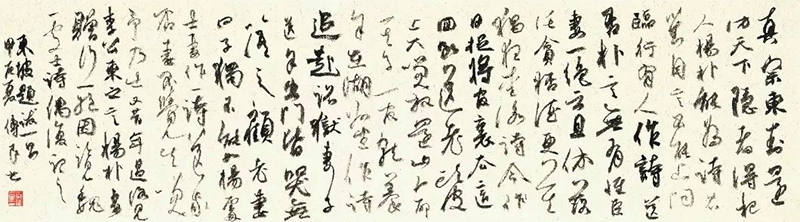 真宗東封還
访天下隐者得杞
人楊朴能為詩召
對自言不能上問
臨行有人作詩送
君朴言無有惟臣
妻一絕云且休落
貪杯酒更莫
猖狂愛詠詩今
日捉將官裏去這
回斷送老頭皮
上大笑放還山命
其子一官就養
余在湖州坐作詩
追赴詔獄妻子
送余出門皆哭無
以語之顧老妻
曰子獨不能如楊處
士妻作一詩送我
否妻不覺失笑
予乃出又昔年過洛見
李公東之言楊朴妻
贈行一絕因覽魏
處士詩偶復記之
東坡題跋一則